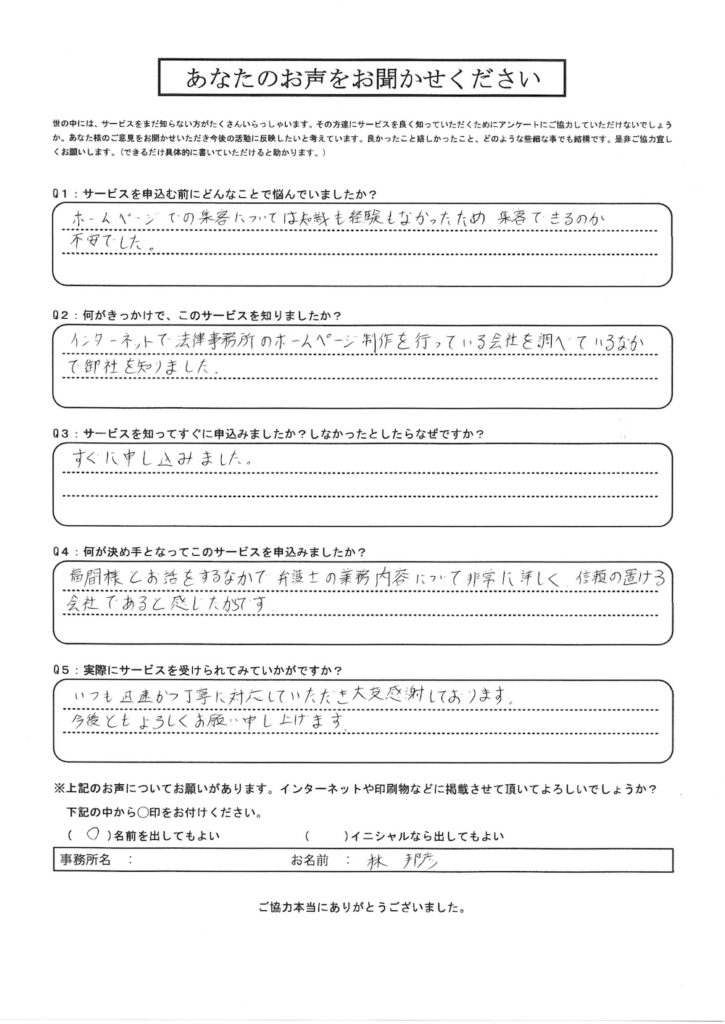 あなたのお声をお聞かせください
世の中には、サービスをまだ知らない方がたくさんいらっしゃいます。その方達にサービスを良く知っていただくためにアンケートにご協力していただけないでしょう
か。あなた様のご意見をお聞かせいただき今後の活動に反映したいと考えています。良かったこと嬉しかったこと、どのような些細な事でも結構です。是非ご協力宜し
くお願いします。（できるだけ具体的に書いていただけると助かります。）
Q1：サービスを申込む前にどんなことで悩んでいましたか？
ホームページでの集客については知識も経験もなかったため 集客できるのか
不安でした。
Q2：何がきっかけで、このサービスを知りましたか？
インターネットで法律事務所のホームページ制作を行っている会社を調べているなか
で御社を知りました。
Q3：サービスを知ってすぐに申込みましたか？しなかったとしたらなぜですか？
すぐに申し込みました。
Q4：何が決め手となってこのサービスを申込みましたか？
様とお話をするなかで弁護士の業務内容について非常に詳しく 信頼の置ける
会社であると感じたからです
Q5：実際にサービスを受けられてみていかがですか？
いつも迅速かつ丁寧に対応していただき大変感謝しております。
今後ともよろしくお願い申し上げます。
※上記のお声についてお願いがあります。インターネットや印刷物などに掲載させて頂いてよろしいでしょうか？
下記の中から○印をお付けください。
（ ○ ）名前を出してもよい （ ）イニシャルなら出してもよい
事務所名 ： お名前 ： 林 邦彦
ご協力本当にありがとうございました。